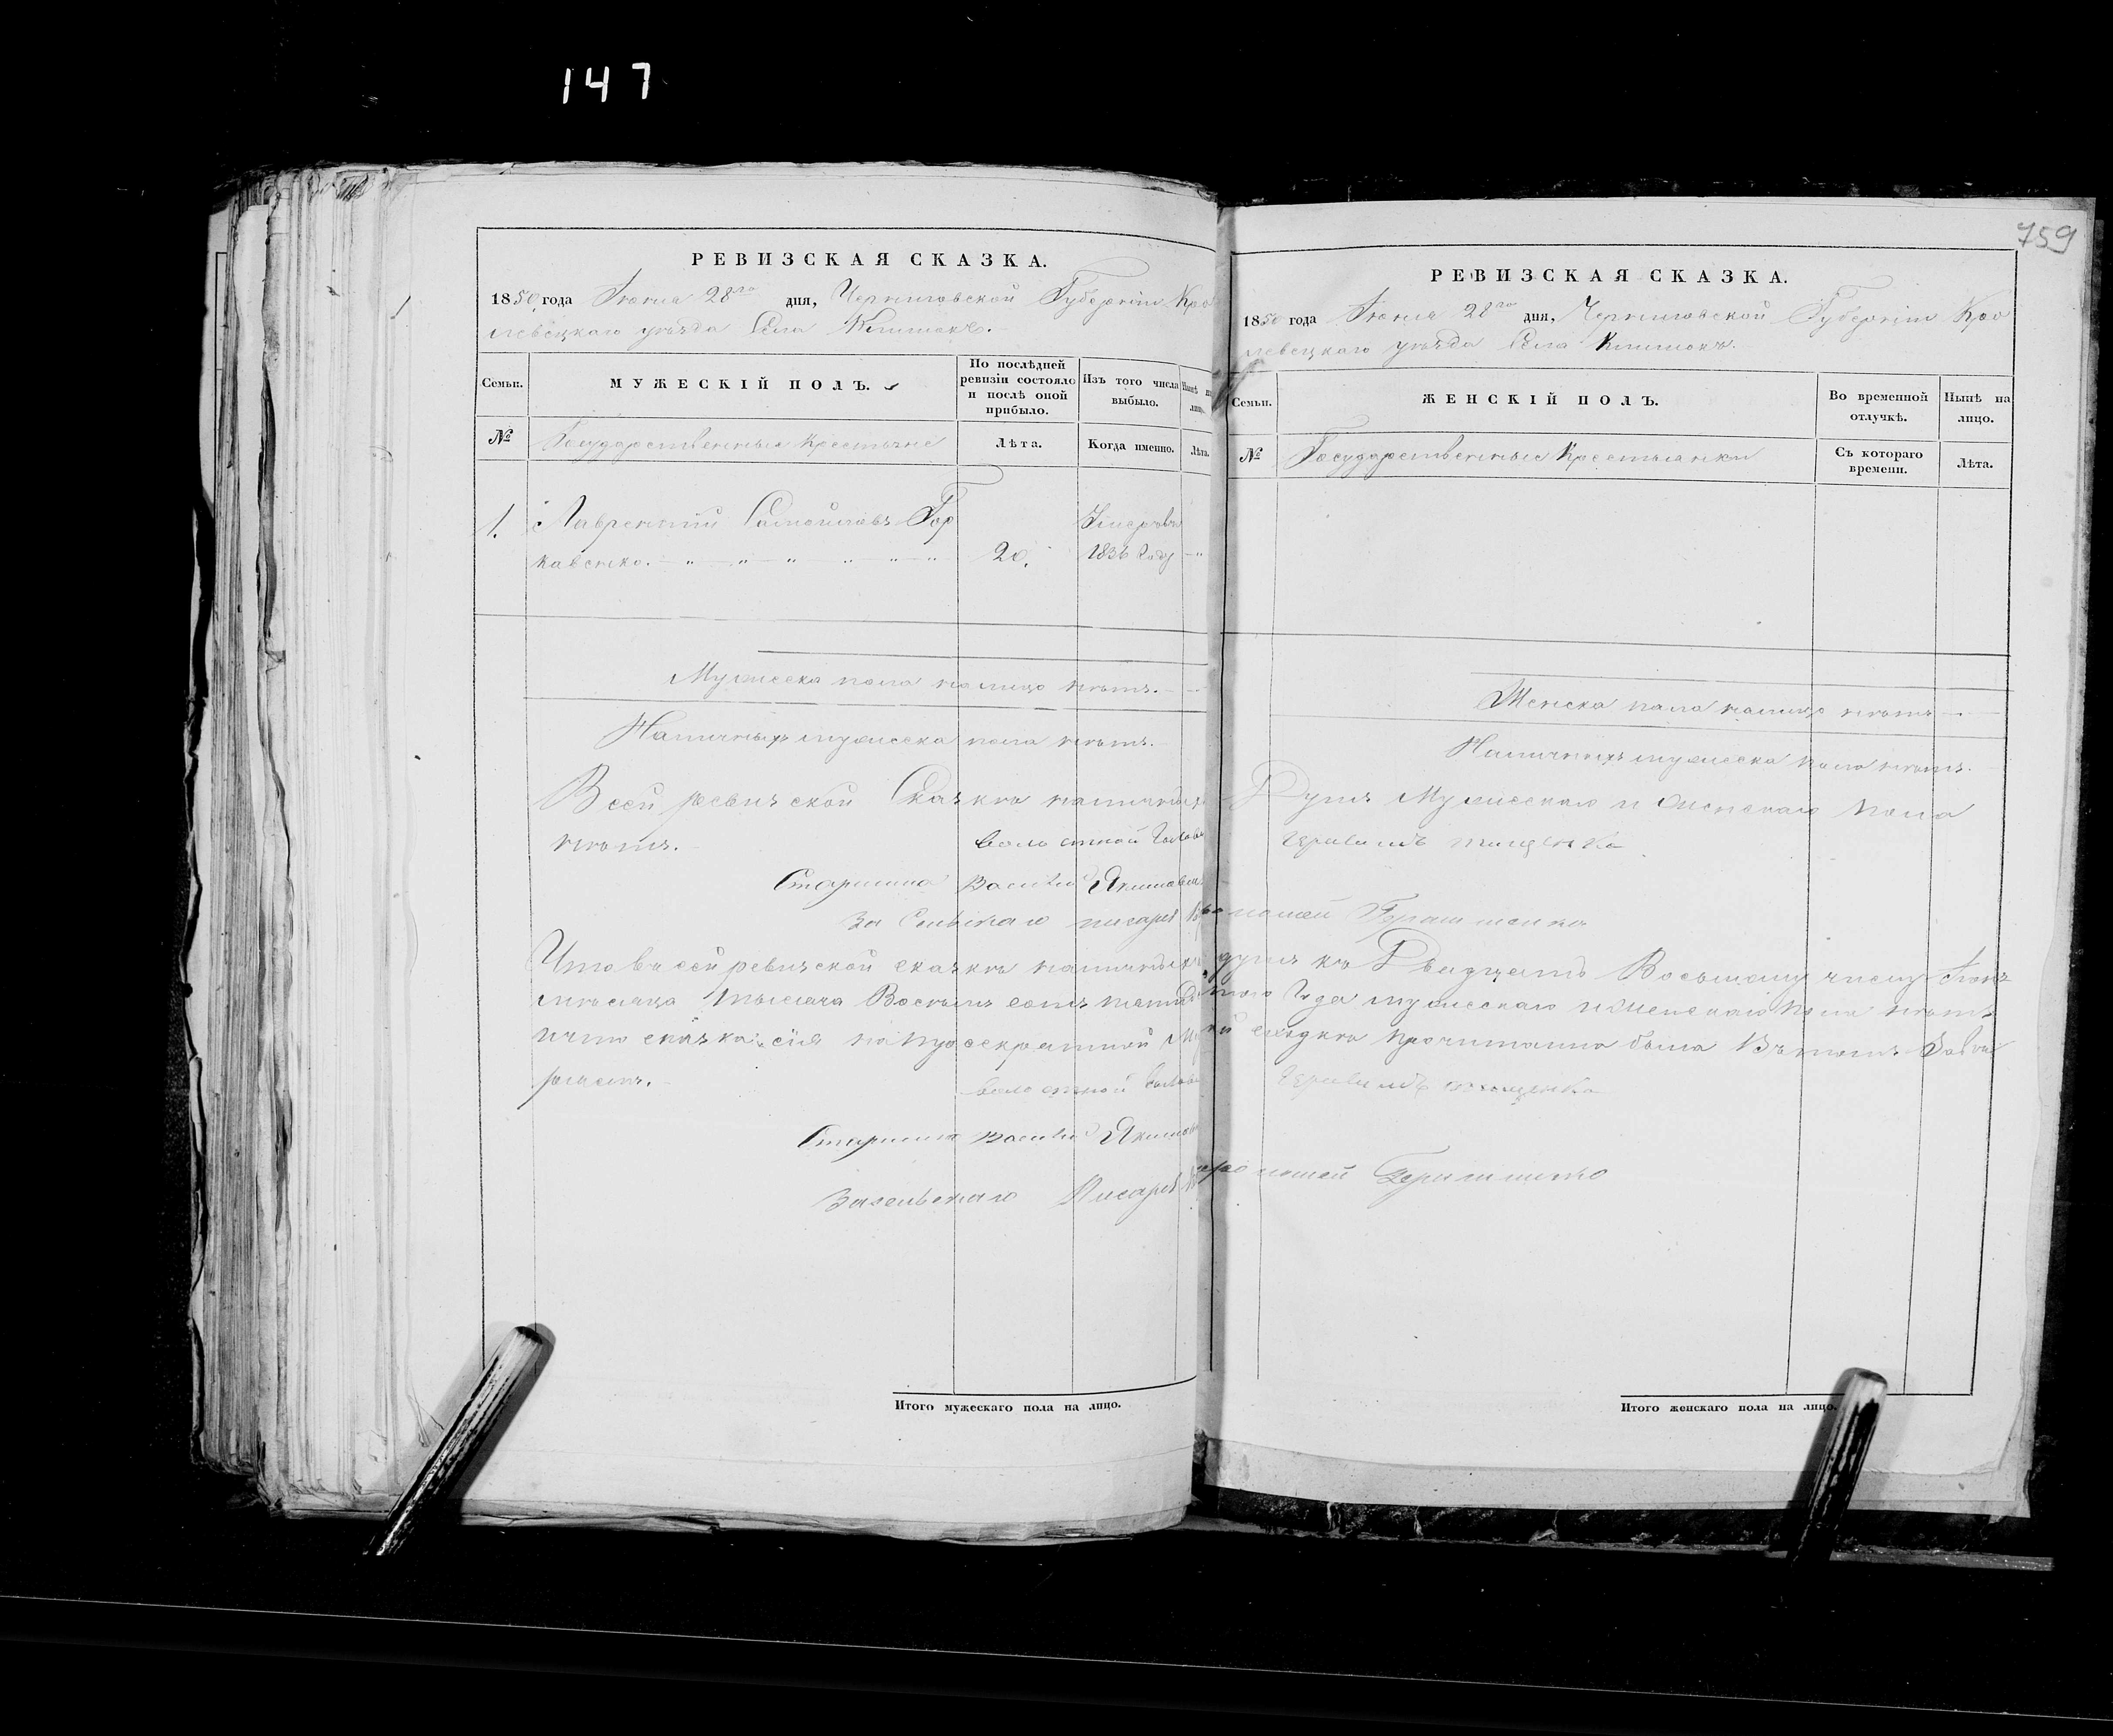 147
759
РЕВИЗСКАЯ СКАЗКА.
1850 года Іюня 28го дня, Черниговской Губерніи Кро
левецкаго уѣзда Села Клишокъ.
Семьи.
МУЖЕСКІЙ ПОЛЪ.
По послѣдней ревизіи состояло и послѣ оной прибыло.
Изъ того числа выбыло.
Нынѣ на лицо.
№
Государственные Крестьяне
Лѣта.
Когда именно.
Лѣта.
1. Лаврентій Самойловъ Гор
кавенко. 20. Умеръ въ 1836 году
Мужеска пола налицо нѣтъ.
Наличныхъ мужеска пола нѣтъ.
РЕВИЗСКАЯ СКАЗКА.
1850 года Іюня 28го дня, Черниговской Губерніи Кро
левецкаго уѣзда Села Клишокъ.
Семьи.
ЖЕНСКІЙ ПОЛЪ.
Во временной отлучкѣ.
Нынѣ на лицо.
№
Государственные Крестьянки
Съ котораго времени.
Лѣта.
Женска пола налицо нѣтъ
Наличныхъ мужеска пола нѣтъ.
Всей ревизской Сказкѣ наличныхъ Душъ Мужескаго и женскаго пола
нѣтъ.
волостной Голова
Старшина Василій Якимов
За Сельскаго писаря
Что в сей ревизской сказкѣ наличныхъ душъ къ Двадцать Восьмому числу Іюня
мѣсяца тысяча Восемь сотъ года мужескаго и женскаго пола нѣтъ
и что сказка сія на прочитанна была Въ томъ
волостной Голова
Старшина Василій Якимов
За сельскаго Писаря
Итого мужескаго пола на лицо.
Итого женскаго пола на лицо.